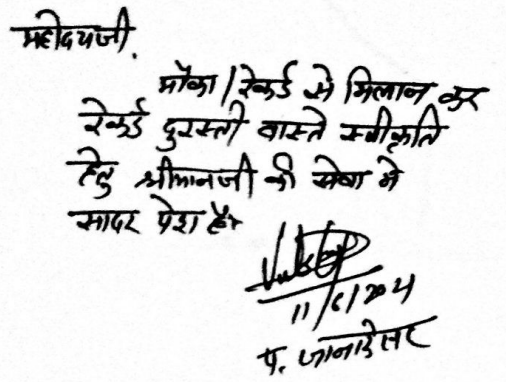 महोदयजी,
मौका/रेकर्ड से मिलान कर
रेकर्ड दुरस्ती वास्ते स्वीकृति
हेतु श्रीमानजी की सेवा में
सादर पेश है।
प. जानादेसर